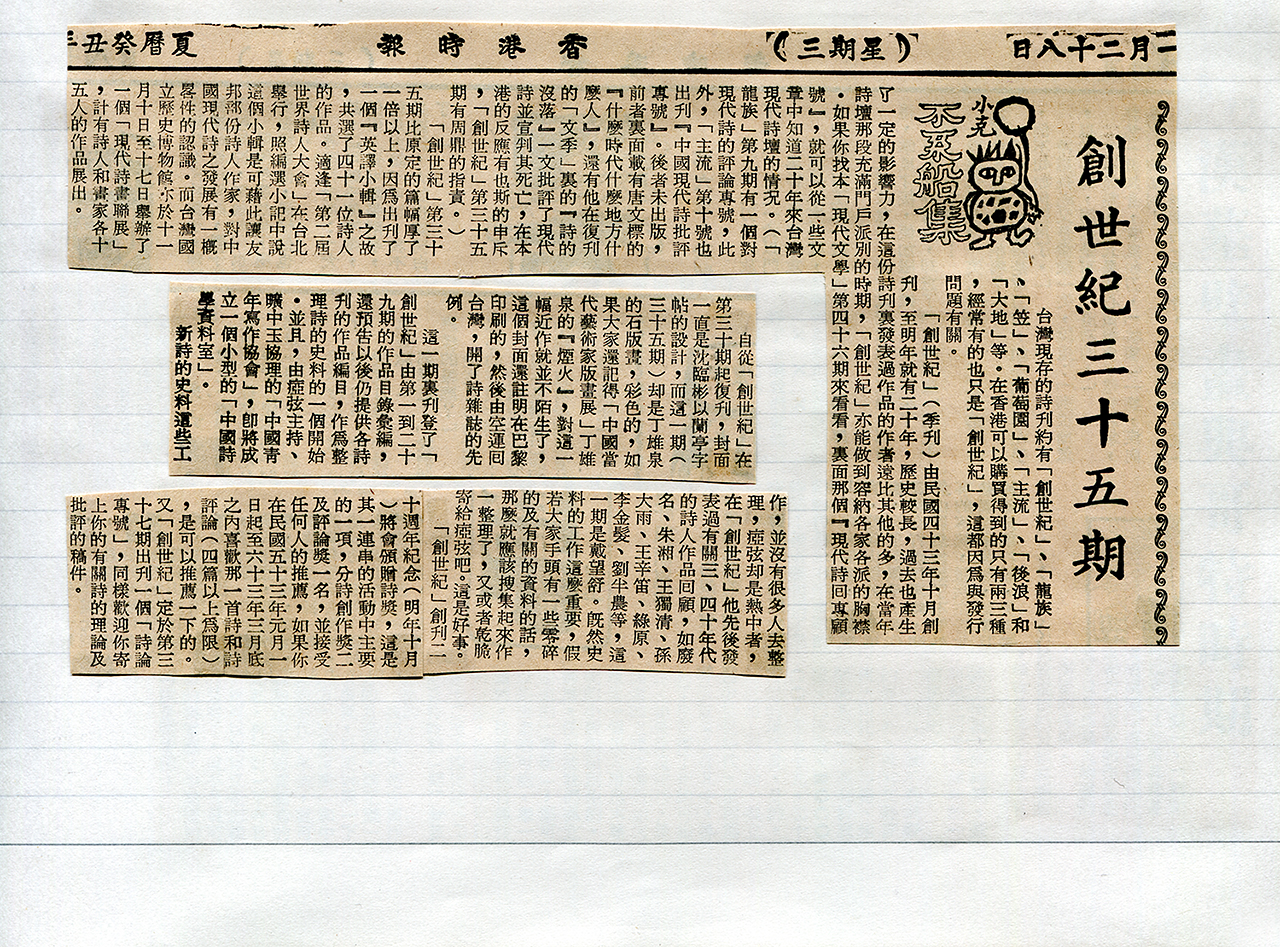 一月二十八日
（星期三）
香港時報
夏曆癸丑年
創世紀三十五期
小克
不繫船集
台灣現存的詩刊約有「創世紀」、「龍族」
、「笠」、「葡萄園」、「主流」、「後浪」和
「大地」等。在香港可以購買得到的只有兩三種
，經常有的也只是「創世紀」，這都因為與發行
問題有關。
「創世紀」（季刊）由民國四十三年十月創
刊，至明年就有二十年，歷史較長，過去也產生
了一定的影響力，在這份詩刊裏發表過作品的作者遠比其他的多，在當年
詩壇那段充滿門戶派別的時期，「創世紀」亦能做到容納各家各派的胸襟
。如果你找本「現代文學」第四十六期來看看，裏面那個『現代詩回專顧
號』，就可以從一些文
章中知道二十年來台灣
現代詩壇的情況。（「
龍族」第九期有一個對
現代詩的評論專號，此
外，「主流」第十號也
出刊『中國現代詩批評
專號』。後者未出版，
前者裏面載有唐文標的
『什麼時代什麼地方什
麼人』，還有他在復刊
的「文季」裏的『詩的
沒落』一文批評了現代
詩並宣判其死亡，在本
港的反應有也斯的申斥
，「創世紀」第三十五
期有周鼎的指責。）
「創世紀」第三十
五期比原定的篇幅厚了
一倍以上，因為出刊了
一個『英譯小輯』之故
，共選了四十一位詩人
的作品。適逢「第二屆
世界詩人大會」在台北
舉行，照編選小記中說
這個小輯是可藉此讓友
邦部份詩人作家，對中
國現代詩之發展有一概
畧性的認識。而台灣國
立歷史博物館亦於十一
月十日至十七日舉辦了
一個「現代詩畫聯展」
，計有詩人和畫家各十
五人的作品展出。
自從「創世紀」在
第三十期起復刊，封面
一直是沈臨彬以蘭亭字
帖的設計，而這一期（
三十五期）却是丁雄泉
的石版畫，彩色的，如
果大家還記得「中國當
代藝術家版畫展」丁雄
泉的『煙火』，對這一
幅近作就並不陌生了，
這個封面還註明在巴黎
印刷的，然後由空運回
台灣，開了詩雜誌的先
例。
這一期裏刋登了「
創世紀」由第一到二十
九期的作品目錄彙編，
還預告以後仍提供各詩
刊的作品編目，作為整
理詩的史料的一個開始
。並且，由瘂弦主持、
曠中玉協理的「中國青
年寫作協會」，即將成
立一個小型的「中國詩
學資料室」。
新詩的史料這些工
作，並沒有很多人去整
理，瘂弦却是熱中者，
在「創世紀」他先後發
表過有關三、四十年代
的詩人作品回顧，如廢
名、朱湘、王獨清、孫
大雨、王辛笛、綠原、
李金髮、劉半農等，這
一期是戴望舒。旣然史
料的工作這麼重要，假
若大家手頭有一些零碎
的及有關的資料的話，
那麽就應該搜集起來作
一整理了，又或者乾脆
寄給瘂弦吧。這是好事。
「創世紀」創刋二
十週年紀念（明年十月
）將會頒贈詩獎，這是
其一連串的活動中主要
的一項，分詩創作獎二
及評論獎一名，並接受
任何人的推薦，如果你
在民國五十三年元月一
日起至六十三年三月底
之內喜歡那一首詩和詩
評論（四篇以上為限）
，是可以推薦一下的。
又「創世紀」定於第三
十七期出刋一個「詩論
專號」，同樣歡迎你寄
上你的有關詩的理論及
批評的稿件。